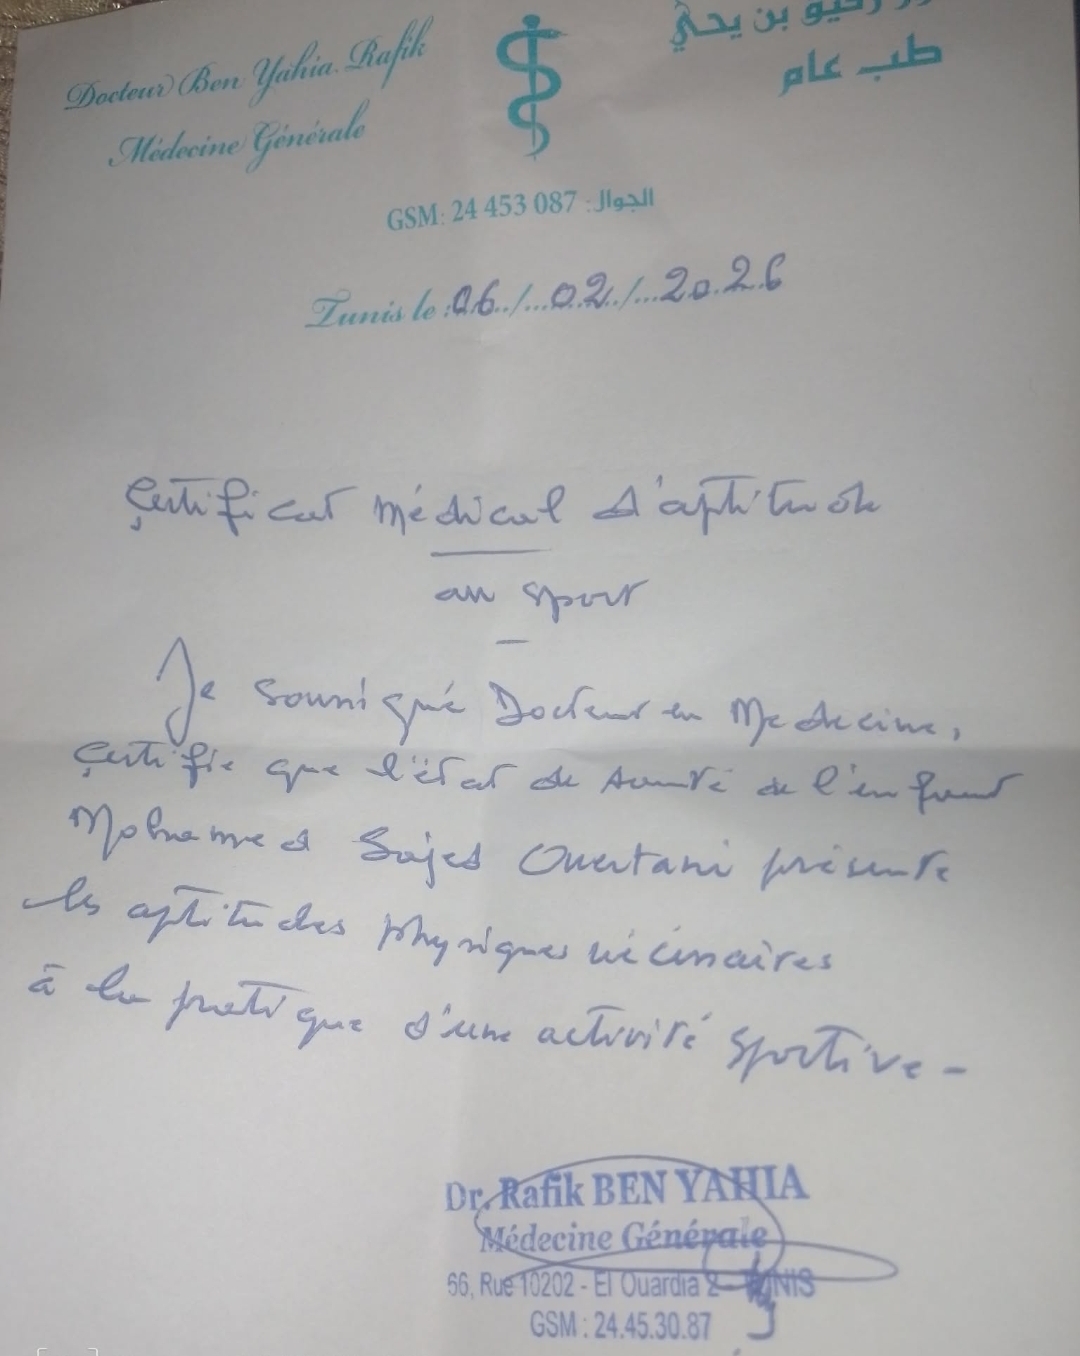 Docteur Ben Yahia Rafik
Médecine Générale
بن يحي
طب عام
GSM: 24 453 087 :الجوال
Tunis le :06../...02../...2026
Certificat Médical d'aptitude
au sport
Je soussigné Docteur en Medecine,
Certifie que l'état de santé de l'enfant
Mohamed Sajed Ouertani présente
les aptitudes physiques nécessaires
à la pratique d'une activité sportive -
Dr. Rafik BEN YAHIA
Médecine Générale
66, Rue 10202 - El Ouardia 2 - TUNIS
GSM : 24.45.30.87